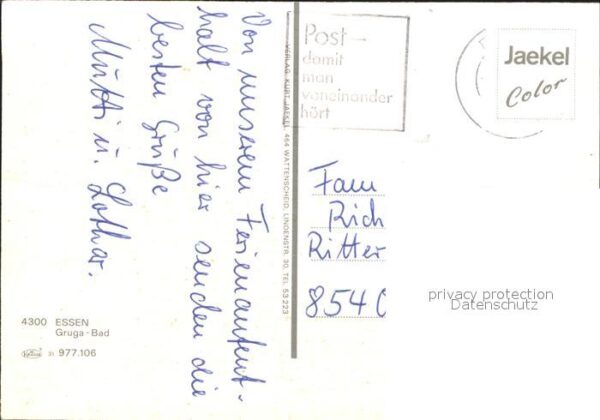 Von unserem Ferienaufent-
halt von hier senden die
besten Grüße
Mutti u. Lothar.
4300 ESSEN
Gruga-Bad
977.106
VERLAG KURT JAEKEL, 464 WATTENSCHEID, LINDENSTR. 30, TEL. 53223
Post –
damit
man
voneinander
hört
Jaekel
Color
Fam
Rich
Ritter
8540
privacy protection
Datenschutz